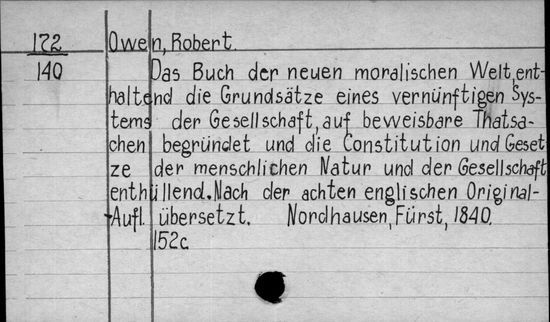 172 Owen, Robert
140 Das Buch der neuen moralischen Welt, ent-
haltend die Grundsätze eines vernünftigen Sys-
tems der Gesellschaft, auf beweisbare Thatsa-
chen begründet und die Constitution und Geset
ze der menschlichen Natur und der Gesellschaft
enthüllend. Nach der achten englischen Original-
-Aufl. übersetzt. Nordhausen, Fürst, 1840.
152c